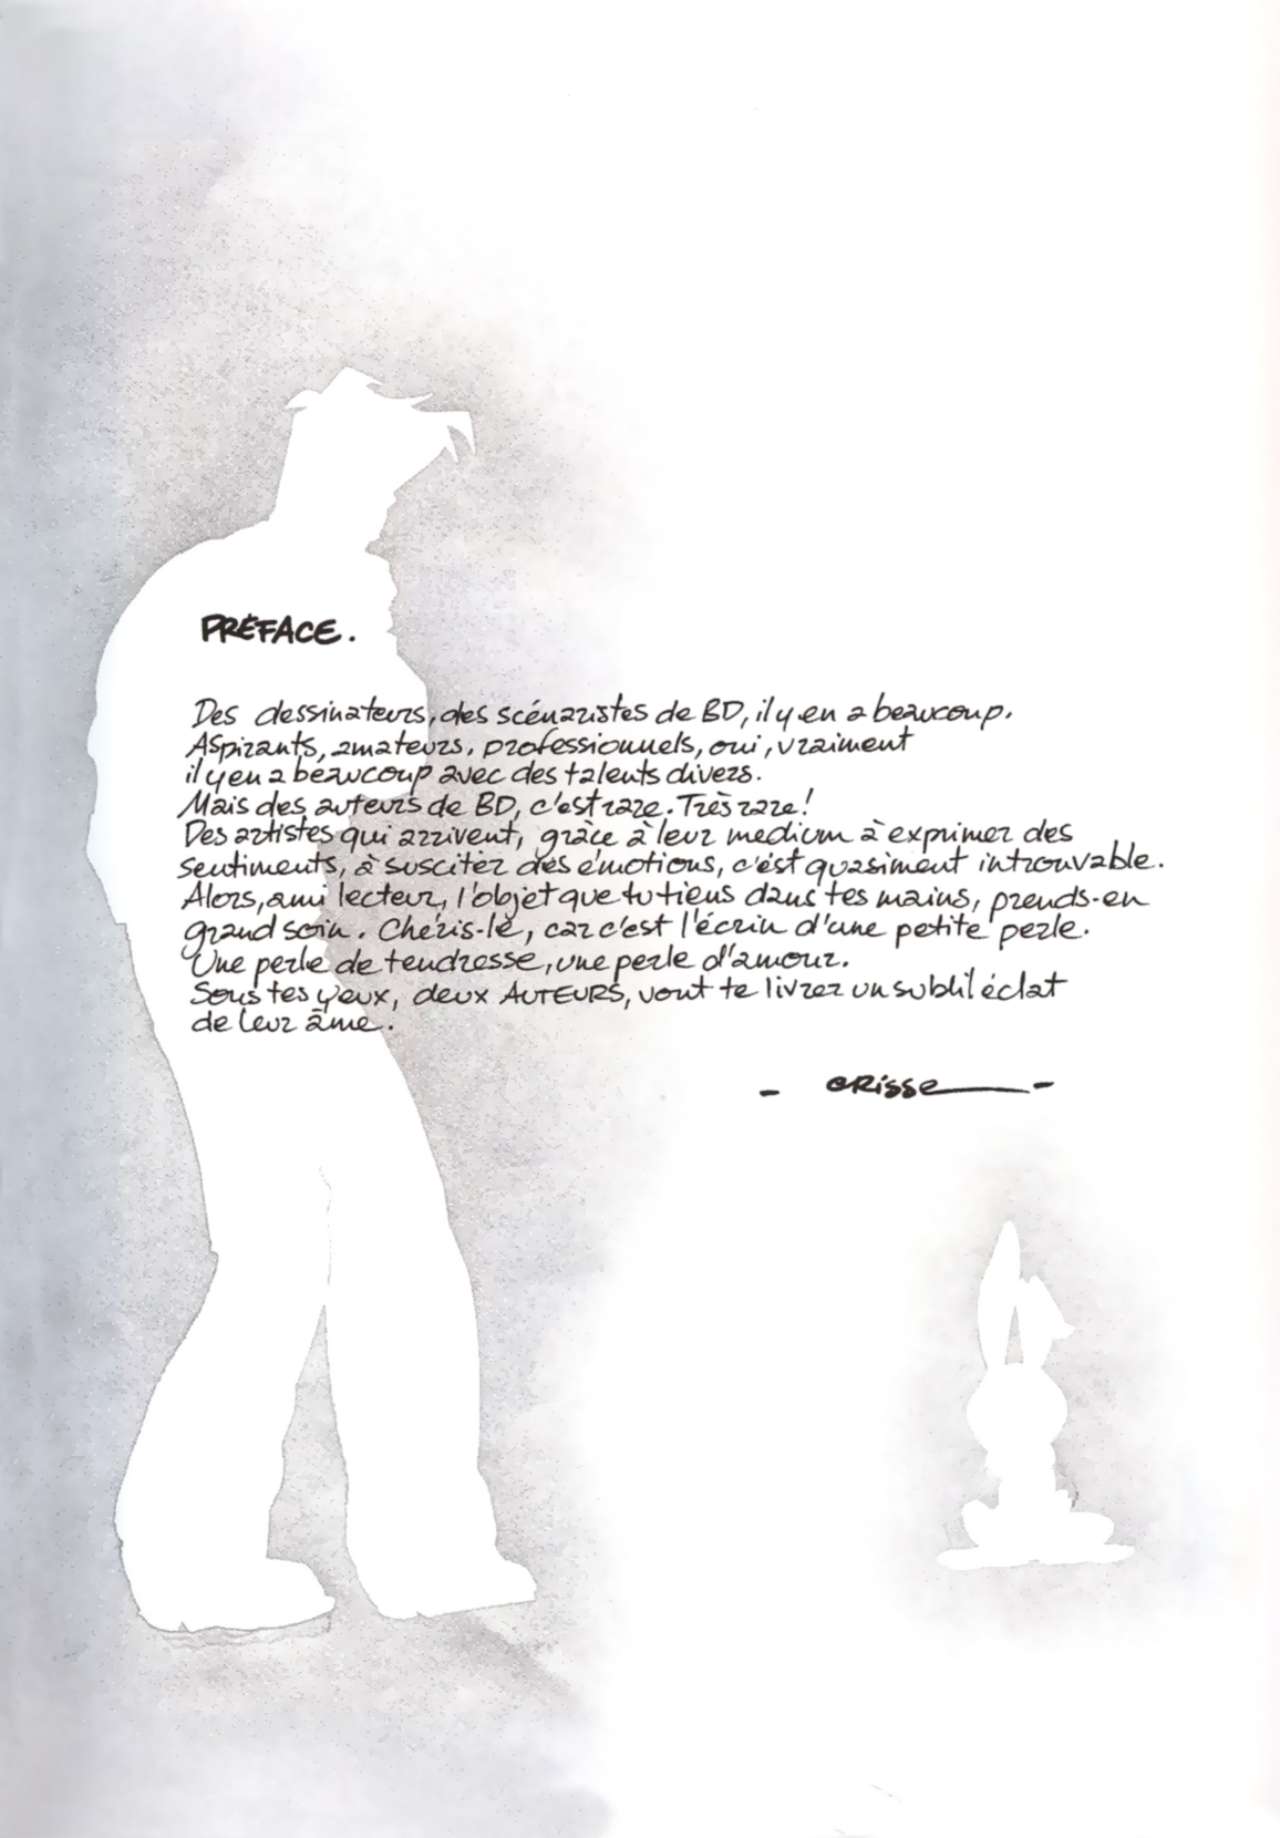 PRÉFACE.
Des dessinateurs, des scénaristes de BD, il y en a beaucoup.
Aspirants, amateurs, professionnels, oui, vraiment
il y en a beaucoup avec des talents divers.
Mais des auteurs de BD, c'est rare. Très rare!
Des artistes qui arrivent, grâce à leur medium à exprimer des
sentiments, à susciter des émotions, c'est quasiment introuvable.
Alors, ami lecteur, l'objet que tu tiens dans tes mains, prends-en
grand soin. Chéris-le, car c'est l'écrin d'une petite perle.
Une perle de tendresse, une perle d'amour.
Sous tes yeux, deux AUTEURS, vont te livrer un subtil éclat
de leur âme.
- CRISSE -